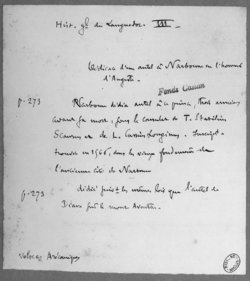 Hist. gle du Languedoc. III.
Dédicace d'un autel à Narbonne en l'honneur
d'Auguste.
Fonds Cazian
p. 273 Narbonne dédia autel à ce prince, trois années
avant sa mort, sous le consulat de T. Statilius
Scaurus et de L. Cassius Longinus. Inscript.
trouvée en 1566, dans les vieux fondements de
l'ancienne cité de Narbonne
p. 273 dédié suivt les mêmes lois que l'autel de
Diane sur le mont Aventin.
Volces Arécomiques